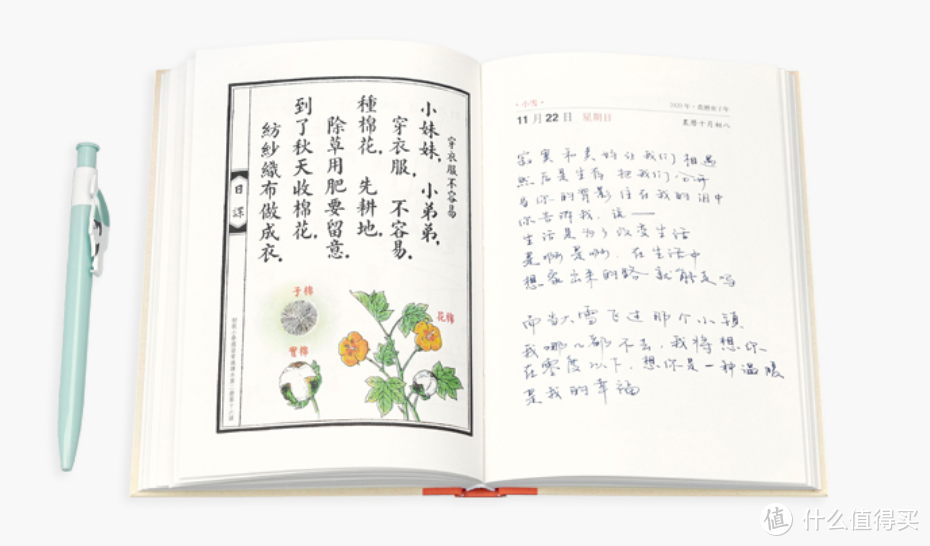 穿衣服不容易
小妹妹,小弟弟,
穿衣服 不容易.
種棉花,先耕地,
除草用肥要留意.
到了秋天收棉花,
紡紗織布做成衣.
日課
棉子
棉花
棉實
·小雪·
2020年·農曆庚子年
11月22日 星期日
農曆十月初八
寂寞和美 让我们相遇
然后是生存把我们分开
当你的背影住在我的泪中
你告诉我,说——
生活是为了改变生活
是啊是啊,在生活中
想象出来的路就能走吗
而当大雪飞过那个小镇
我哪儿都不去,我将想你
在零度以下,想你是一种温暖
是我的幸福
值 什么值得买